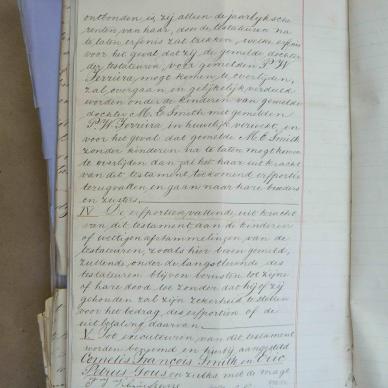 ontbonden is, zij alleen de jaarlijksche
renten van haar, door de testateuren na
te laten erfenis zal trekken,
voor het geval dat zij, de gemelde dochter
der testateuren, voor gemelden P. W.
Ferreira, mogt komen te overlijden,
zal overgaan en gelijkelijk verdeeld
worden onder de kinderen van gemelde
dochter M. E. Smith met gemelden
P. W. Ferreira in huwelijk verwekt, en
voor het geval dat gemelde M. E. Smith
zonder kinderen na te laten mogt komen
te overlijden dan zal het haar uit kracht
van dit testament toekomend erfportie
terugvallen en gaan naar hare broeders
en zusters.
IV De erfportien, vallende uit kracht
van dit testament aan de kinderen
of wettige afstammelingen van de
testateuren, zoals hier boven gemeld,
zullen onder de langstlevende des
testateuren blijven berusten tot zijne
of hare dood, zonder dat hij of zij
gehouden zal zijn zekerheid te stellen
voor het bedrag des erfportien of de
uitbetaling daarvan.
V. Tot executeuren van dit testament
worden benoemd en hierbij aangesteld
Cornelis Francois Smith en Eric
Petrus Gous en zulks met de magt